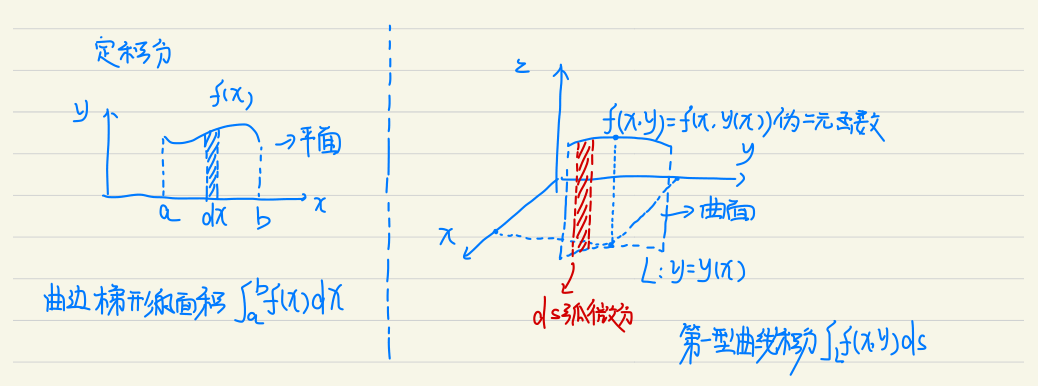 定积分
y
f(x)
→平面
a
dx
b
x
曲边梯形面积 ∫_a^b f(x)dx
z
f(x,y)=f(x,y(x))伪二元函数
y
x
→曲面
L:y=y(x)
ds弧微分
第一型曲线积分 ∫_L f(x,y)ds